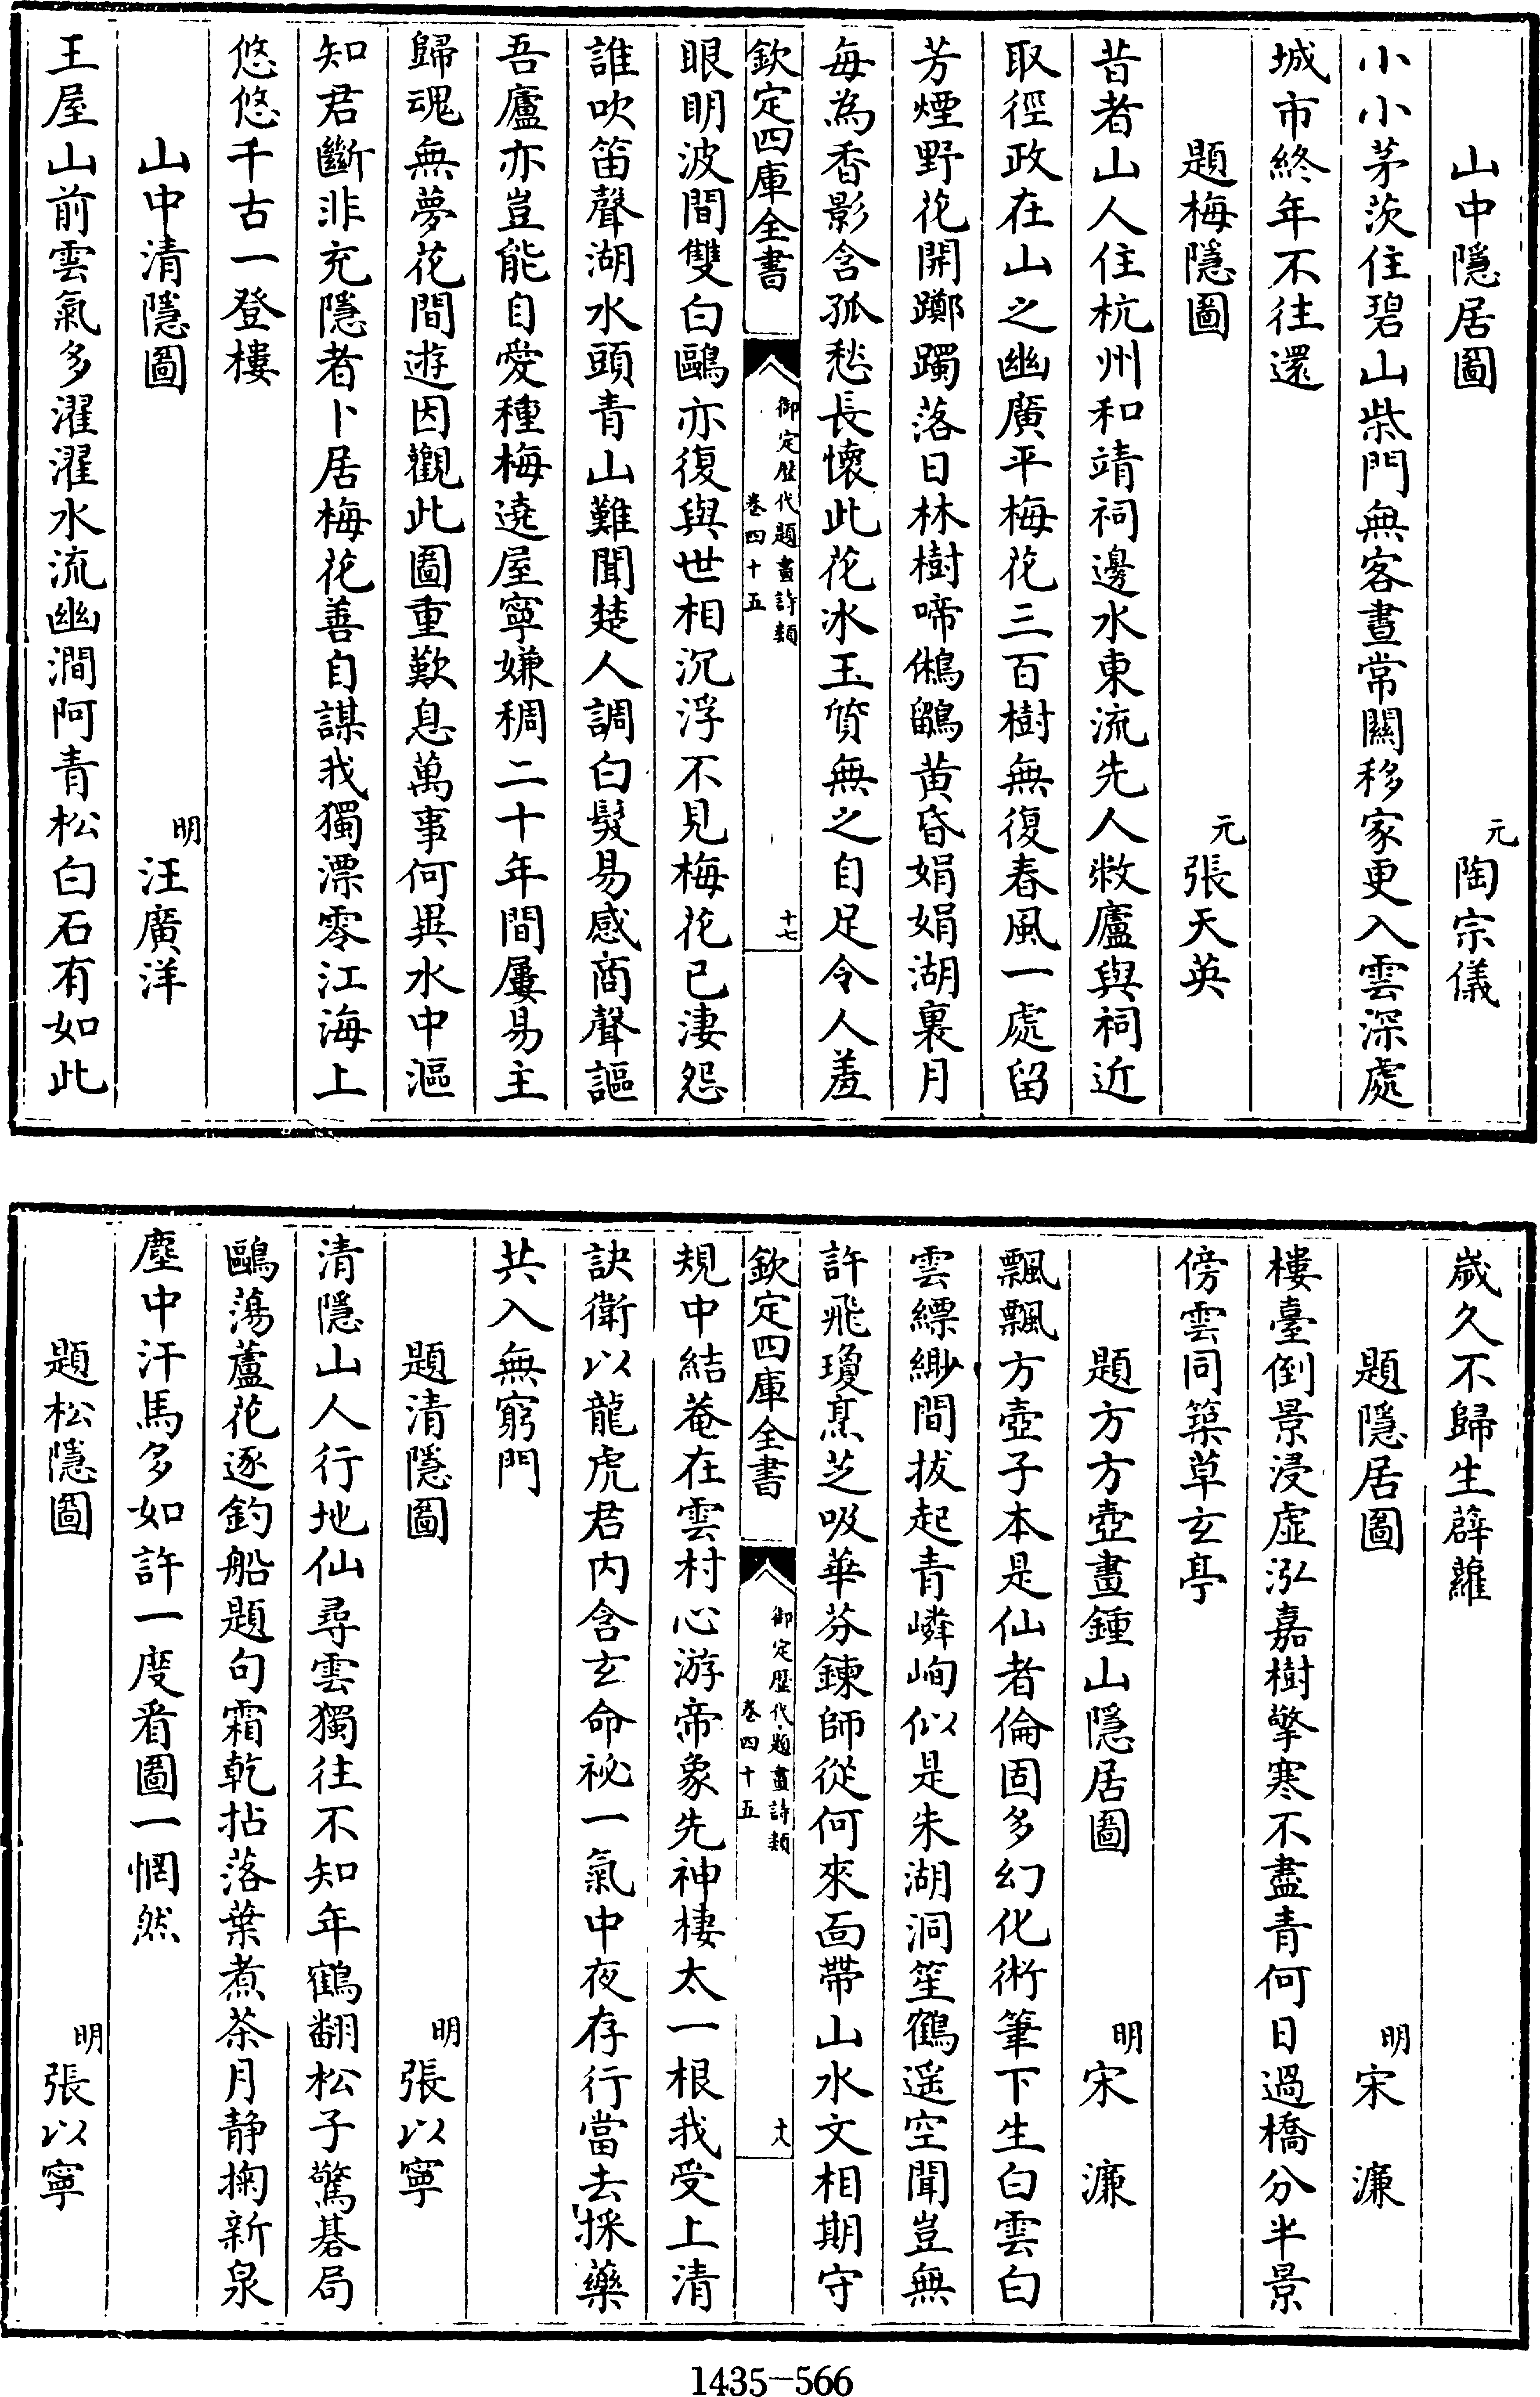 山中隱居圖　元陶宗儀
小小茅茨住碧山柴門無客晝常關移家更入雲深處
城市終年不往還
題梅隱圖　元張天英
昔者山人住杭州和靖祠邊水東流先人敝廬與祠近
取徑政在山之幽廣平梅花三百樹無復春風一處留
芳煙野花開躑躅落日林樹啼鵂鶹黄昏娟娟湖裏月
每為香影含孤愁長懷此花冰玉質無之自足令人羞
欽定四庫全書　御定歴代題畫詩類　卷四十五　十七
眼明波間雙白鷗亦復與世相沉浮不見梅花已淒怨
誰吹笛聲湖水頭青山難聞楚人調白髮易感商聲謳
吾廬亦豈能自愛種梅遶屋寧嫌稠二十年間屢易主
歸魂無夢花間遊因觀此圖重歎息萬事何異水中漚
知君斷非充隱者卜居梅花善自謀我獨漂零江海上
悠悠千古一登樓
山中清隱圖　明汪廣洋
王屋山前雲氣多濯濯水流幽澗阿青松白石有如此
嵗久不歸生薜蘿
題隱居圖　明宋濂
樓臺倒景浸虛泓嘉樹擎寒不盡青何日過橋分半景
傍雲同築草玄亭
題方方壺畫鍾山隱居圖　明宋濂
飄飄方壺子本是仙者倫固多幻化術筆下生白雲白
雲縹緲間拔起青嶙峋似是朱湖洞笙鶴遥空聞豈無
許飛瓊烹芝吸華芬鍊師從何來面帶山水文相期守
欽定四庫全書　御定歴代題畫詩類　卷四十五　十八
規中結菴在雲村心游帝象先神棲太一根我受上清
訣衛以龍虎君内含玄命祕一氣中夜存行當去採藥
共入無窮門
題清隱圖　明張以寧
清隱山人行地仙尋雲獨往不知年鶴翻松子驚碁局
鷗蕩蘆花逐釣船題句霜乾拈落葉煮茶月静掬新泉
塵中汗馬多如許一度看圖一惘然
題松隱圖　明張以寧
1435-566